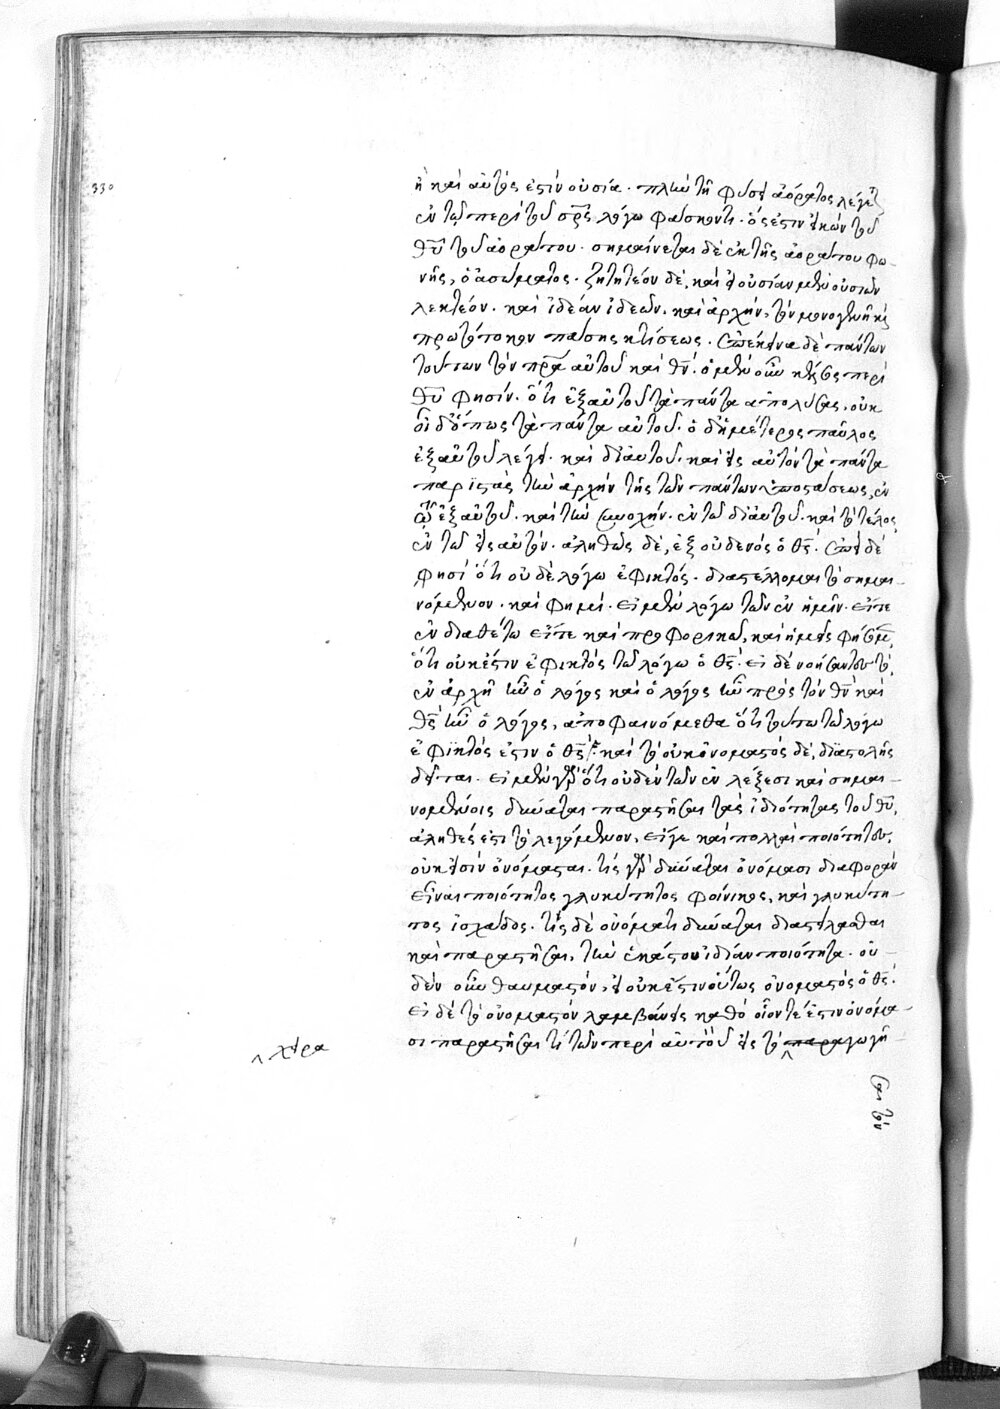 330
ἢ καὶ αὐτός ἐστιν οὐσία. πλὴν τῇ φύσει ἀόρατος λέγετ
ἐν τῷ περὶ τοῦ σρς λόγῳ φάσκοντι. ὅς ἐστιν εἰκὼν τοῦ
θυ τοῦ ἀοράτου. σημαίνεται δὲ ἐκ τῆς ἀοράτου φω-
νῆς, ὁ ἀσώματος. ζητητέον δὲ, καὶ εἰ οὐσίαν μὲν οὐσιῶν
λεκτέον. καὶ ἰδέαν ἰδεῶν. καὶ ἀρχὴν, τὸν μονογενῆ καὶ
πρωτότοκον πάσης κτίσεως. ἐπέκεινα δὲ πάντων
τούτων τὸν πρα αὐτοῦ καὶ θν. ὁ μὲν οὖν κέλσος περὶ
θυ φησίν. ὅτι ἐξ αὐτοῦ τὰ πάντα ἀπολύσας, οὐκ
οἶδ' ὅπως τὰ πάντα αὐτοῦ. ὁ δ' ἡμέτερος παῦλος
ἐξ αὐτοῦ λέγει. καὶ δι' αὐτοῦ. καὶ εἰς αὐτὸν τὰ πάντα
παριστὰς τὴν ἀρχὴν τῆς τῶν πάντων ὑποστάσεως, ἐν
τῷ ἐξ αὐτοῦ. καὶ τὴν συνοχήν. ἐν τῷ δι' αὐτοῦ. καὶ τὸ τέλος,
ἐν τῷ εἰς αὐτόν. ἀληθῶς δὲ, ἐξ οὐδενὸς ὁ θς. ἐπεὶ δέ
φησί ὅτι οὐδὲ λόγῳ ἐφικτός. διαστέλλομαι τὸ σημαι-
νόμενον. καὶ φημί. εἰ μὲν λόγῳ τῷ ἐν ἡμῖν. εἴτε
ἐνδιαθέτῳ εἴτε καὶ προφορικῷ, καὶ ἡμεῖς φήσομεν,
ὅτι οὐκ ἔστιν ἐφικτὸς τῷ λόγῳ ὁ θς. εἰ δὲ νοήσαντες τὸ,
ἐν ἀρχῇ ἦν ὁ λόγος καὶ ὁ λόγος ἦν πρὸς τὸν θν καὶ
θς ἦν ὁ λόγος, ἀποφαινόμεθα ὅτι τούτῳ τῷ λόγῳ
ἐφικτός ἐστιν ὁ θς. καὶ τὸ οὐκ ὀνομαστὸς δὲ, διαστολῆς
δεῖται. εἰ μὲν γὰρ ὅτι οὐδὲν τῶν ἐν λέξεσι καὶ σημαι-
νομένοις δύναται παραστῆσαι τὰς ἰδιότητας τοῦ θυ,
ἀληθές ἐστι τὸ λεγόμενον, εἴγε καὶ πολλαὶ ποιότητες,
οὐκ εἰσὶν ὀνομασταί. τίς γὰρ δύναται ὀνόμασι διαφορὰν
εἶναι ποιότητος γλυκύτητος φοίνικος, καὶ γλυκύτη-
τος ἰσχάδος. τίς δὲ ὀνόματι δύναται διαστείλασθαι
καὶ παραστῆσαι, τὴν ἑκάστου ἰδίαν ποιότητα. οὐ-
δὲν οὖν θαυμαστόν, εἰ οὐκ ἔστιν οὕτως ὀνομαστὸς ὁ θς.
εἰ δὲ τὸ ὀνομαστὸν λαμβάνεις καθὸ οἷόν τέ ἐστιν ὀνόμα-
σι παραστῆσαι τὶ τῶν περὶ αὐτοῦ εἰς τὸ παραγωγῆ
χειρα
σαι τὸν